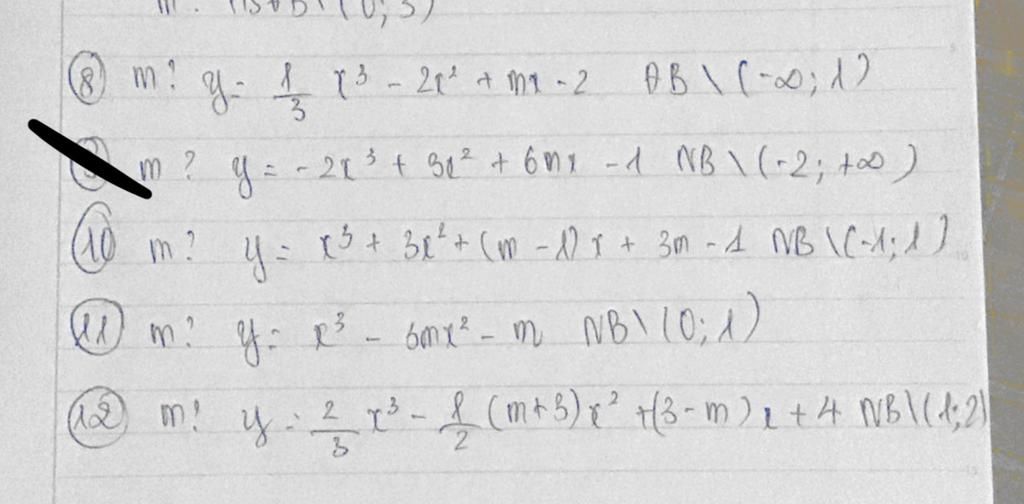 ⑧ m? y = 1/3 x³ - 2x² + mx - 2 ĐB \ (-∞; 1)
m? y = -2x³ + 3x² + 6mx - 1 NB \ (-2; +∞)
⑩ m? y = x³ + 3x² + (m - 1)x + 3m - 1 NB \ (-1; 1)
⑪ m? y = x³ - 6mx² - m NB \ (0; 1)
⑫ m? y = 2/3 x³ - 1/2 (m+3)x² + (3-m)x + 4 NB \ (1; 2)